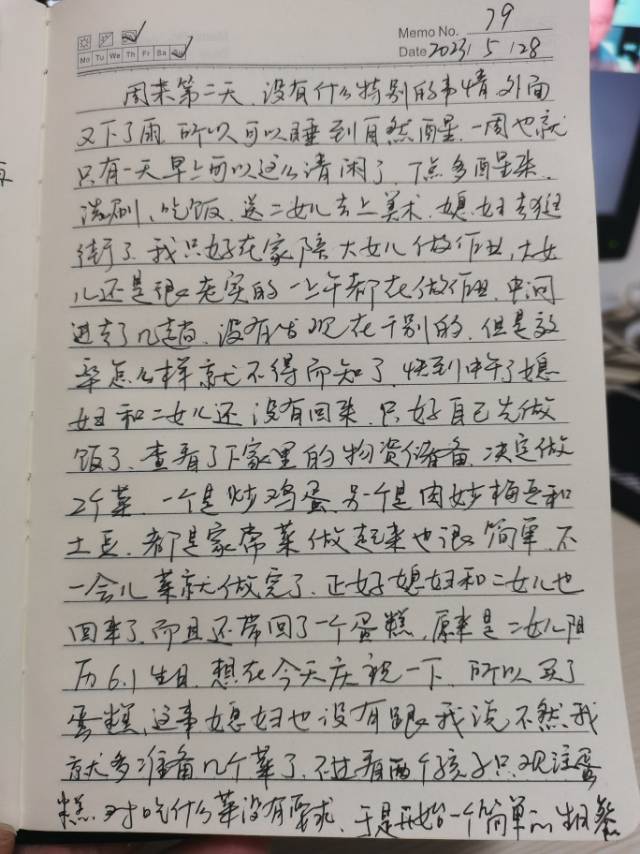 79
Memo No.
Mo Tu We Th Fr Sa Su
Date 2023 / 5 / 28
周末第二天、没有什么特别的事情、外面
又下了雨、所以可以睡到自然醒、一周也就
只有一天早上可以这么清闲了、7点多醒来、
洗刷、吃饭、送二女儿去上美术、媳妇去逛
街了、我只好在家陪大女儿做作业、大女
儿还是很老实的一上午都在做作业、中间
进去了几趟、没有发现在干别的、但是效
率怎么样就不得而知了、快到中午了媳
妇和二女儿还没有回来、只好自己先做
饭了、查看了下家里的物资储备、决定做
2个菜、一个是炒鸡蛋、另一个是肉炒梅豆和
土豆、都是家常菜做起来也很简单、不
一会儿菜就做完了、正好媳妇和二女儿也
回来了、而且还带回了一个蛋糕、原来是二女儿阳
历6.1生日、想在今天庆祝一下、所以买了
蛋糕、这事媳妇也没有跟我说、不然我
就多准备几个菜了、不过看两个孩子只关注蛋
糕、对吃什么菜没有要求、于是开始一个简单的生日餐